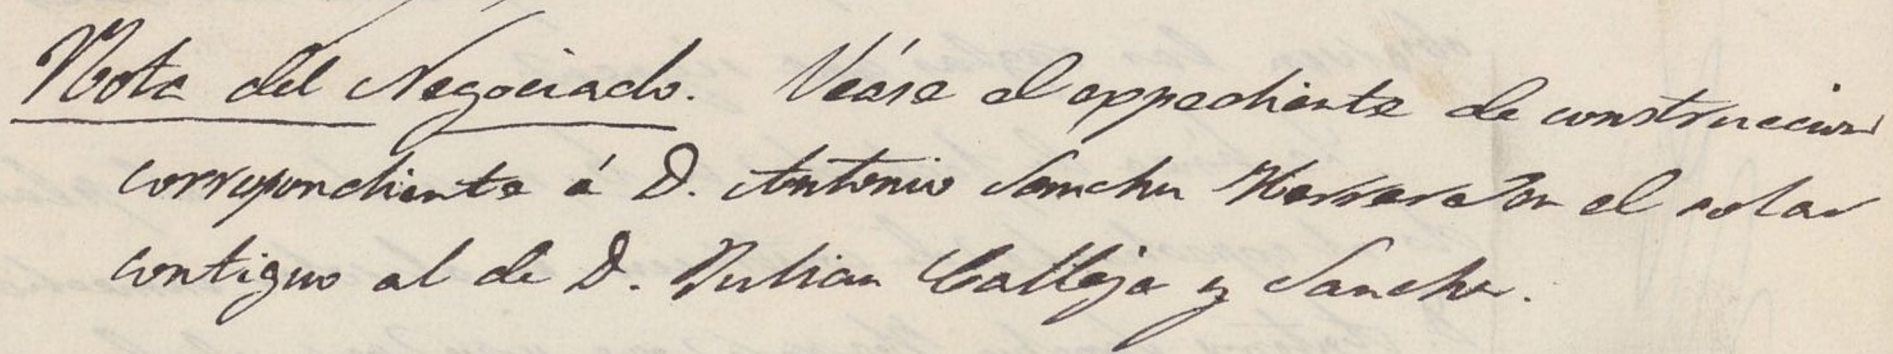 Nota del Negociado. Veáse el expediente de construccion
correspondiente á D. Antonio Sanchez Herrera en el solar
contiguo al de D. Julian Calleja y Sanchez.